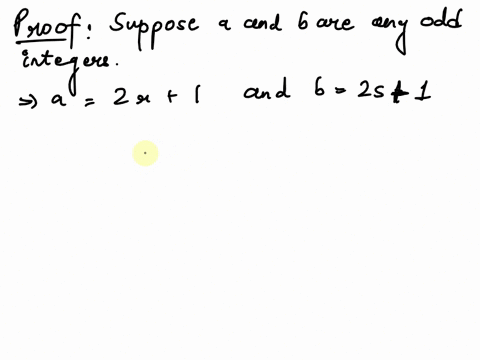 Proof: Suppose a and b are any odd
integers.
⇒ a = 2r + 1 and b = 2s + 1